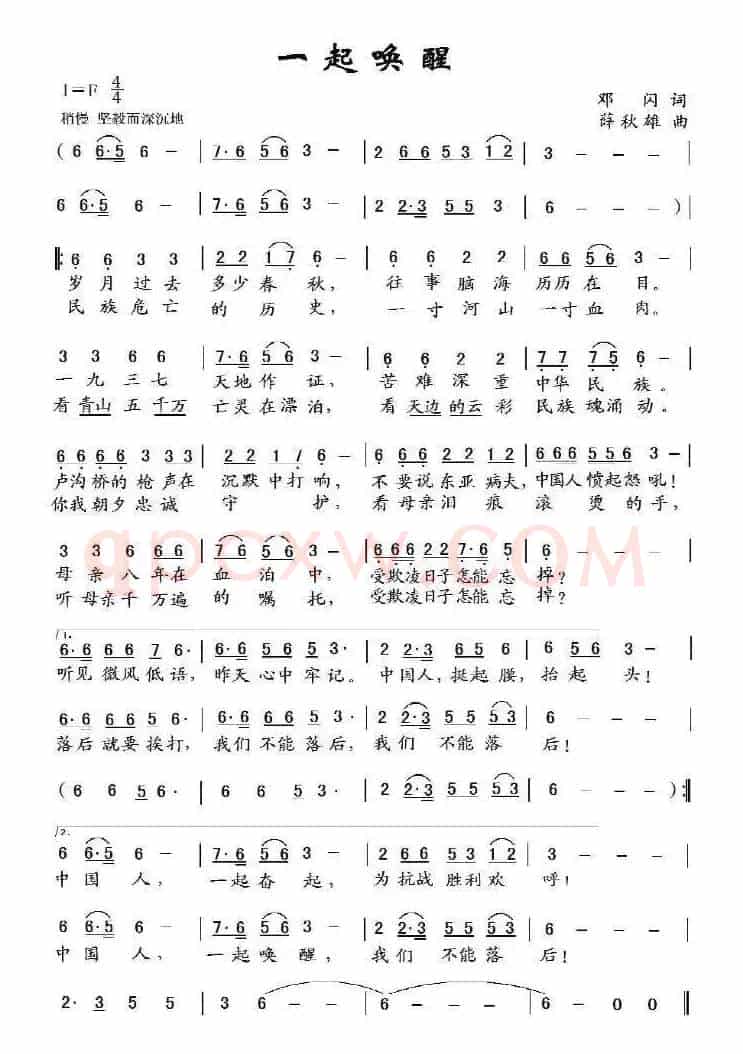 一起唤醒
1=F 4/4
邓 闪 词
稍慢 坚毅而深沉地
薛秋雄 曲
( 6 6·5 6 - | 7·6 5 6 3 - | 2 6 6 5 3 1 2 | 3 - - - |
6 6·5 6 - | 7·6 5 6 3 - | 2 2·3 5 5 3 | 6 - - - )|
‖: 6 6 3 3 | 2 2 1 7 6 - | 6 6 2 2 | 6 6 5 6 3 - |
岁月过去 多少春秋, 往事脑海 历历在目。
民族危亡 的历史, 一寸河山 一寸血肉。
3 3 6 6 | 7·6 5 6 3 - | 6 6 2 2 | 7 7 7 5 6 - |
一九三七 天地作证, 苦难深重 中华民族。
看青山五千万 亡灵在漂泊, 看天边的云彩 民族魂涌动。
6 6 6 6 3 3 3 | 2 2 2 1 6 - | 6 6 6 2 2 1 2 | 6 6 6 5 5 6 3 |
卢沟桥的枪声在 沉默中打响, 不要说东亚病夫, 中国人愤起怒吼!
你我朝夕忠诚 守护, 看母亲泪痕 滚烫的手,
3 3 6 6 6 | 7·6 5 6 3 - | 6 6 6 2 2 7·6 5 | 6 - - - |
母亲八年在 血泊中, 受欺凌日子怎能忘 掉?
听母亲千万遍 的嘱托, 受欺凌日子怎能忘 掉?
1.
6·6 6 6 7 6· | 6·6 6 5 5 3· | 2 2·3 6 5 6 | 6 5 6 3 - |
听见微风低语, 昨天心中牢记。 中国人,挺起腰, 抬起头!
6·6 6 6 5 6· | 6·6 6 6 5 3· | 2 2·3 5 5 5 3 | 6 - - - |
落后就要挨打, 我们不能落后, 我们不能落 后!
( 6 6 5 6· | 6 6 5 3· | 2 2·3 5 5 5 3 | 6 - - - ) :‖
2.
6 6·5 6 - | 7·6 5 6 3 - | 2 6 6 5 3 1 2 | 3 - - - |
中国人, 一起奋起, 为抗战胜利欢 呼!
6 6·5 6 - | 7·6 5 6 3 - | 2 2·3 5 5 3 | 6 - - - |
中国人, 一起唤醒, 我们不能落 后!
2· 3 5 5 | 3 6 - - | 6 - - - | 6 - 0 0 ‖
qpcxw.COM